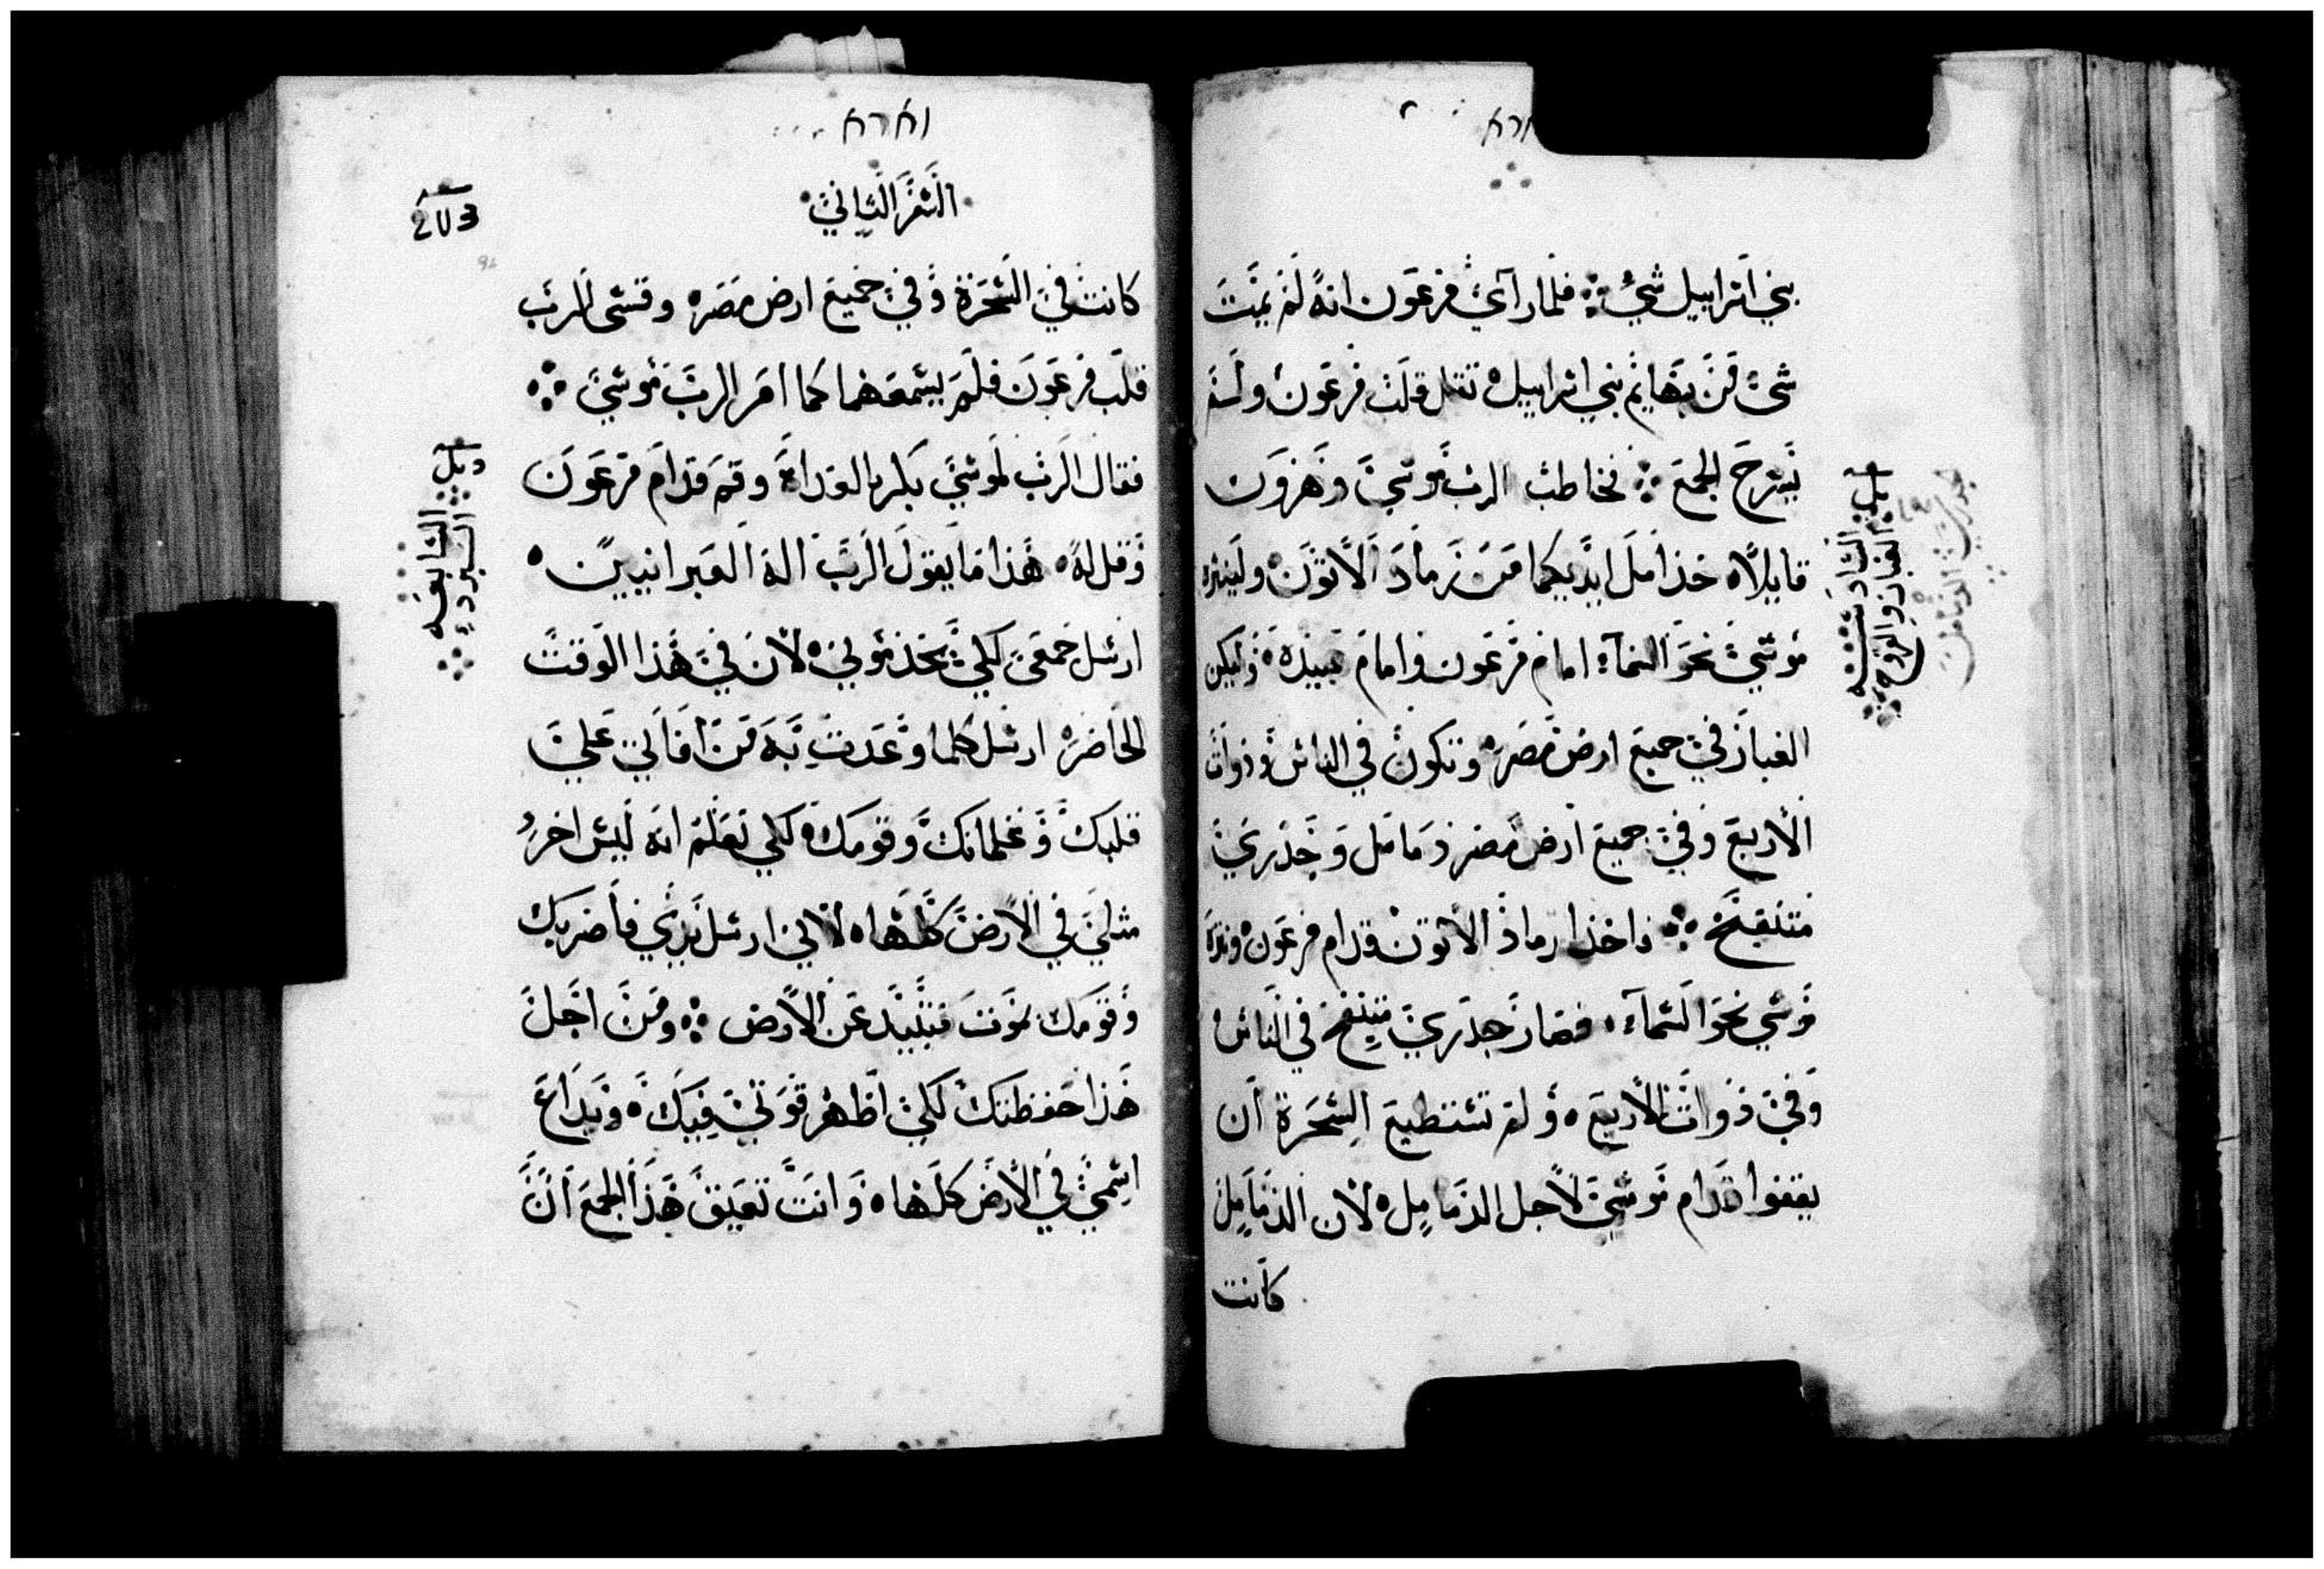 וארא
بني اسراييل شيء فلما رآي فرعون انه لم يمت
شي من بهايم بني اسراييل ثقل قلب فرعون ولم
يسرح الجمع فخاطب الرب موسي وهرون
قايلاً خذا مل ايديكما من رماد الاتون ولينثره
موسي نحو السماء امام فرعون وامام عبيده وليكن
الغبار في جميع ارض مصر وتكون في الناس وذوات
الأربع وفي جميع ارض مصر دمامل وجدري
متنفخ فاخذا رماد الاتون قدام فرعون وبدره
موسي نحو السماء فصار جدري متنفخ في الناس
وفي ذوات الأربع ولم تستطيع السحرة ان
يقفوا قدام موسي لأجل الدماميل لأن الدماميل
كانت
السادسه
الغبار والقروح
וארא
السفر الثاني
203
كانت في السحرة وفي جميع ارض مصر وقسي الرب
قلب فرعون فلم يسمعهما كما امر الرب موسي
فقال الرب لموسي بكر بالغداة وقم قدام فرعون
وقل له هذا ما يقول الرب اله العبرانيين
ارسل جمعي لكي يخدموني لأن في هذا الوقت
الحاضر ارسل كلما وعدت به من افاتي علي
قلبك وغلمانك وقومك لكي تعلم انه ليس اخر
مثلي في الأرض كلها لأني ارسل يدي فأضربك
وقومك بموت فتبيد عن الأرض ومن اجل
هذا حفظتك لكي اظهر قوتي فيك ويداع
اسمي في الأرض كلها وانت تعيق هذا الجمع ان
السابعه
البرد